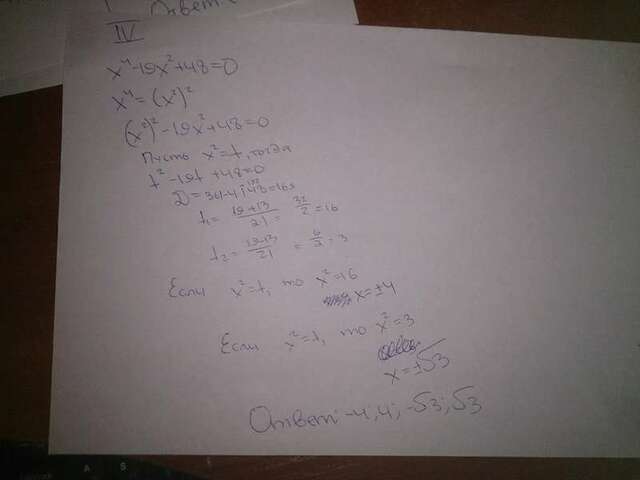 Ответ
IV
x⁴-19x²+48=0
x⁴=(x²)²
(x²)²-19x²+48=0
Пусть x²=t, тогда
t²-19t+48=0
D=361-4·48=169
t₁= (19+13)/2 = 32/2 =16
t₂= (19-13)/2 = 6/2 =3
Если x²=t, то x²=16
x=±4
Если x²=t, то x²=3
x=±√3
Ответ: -4; 4; -√3; √3